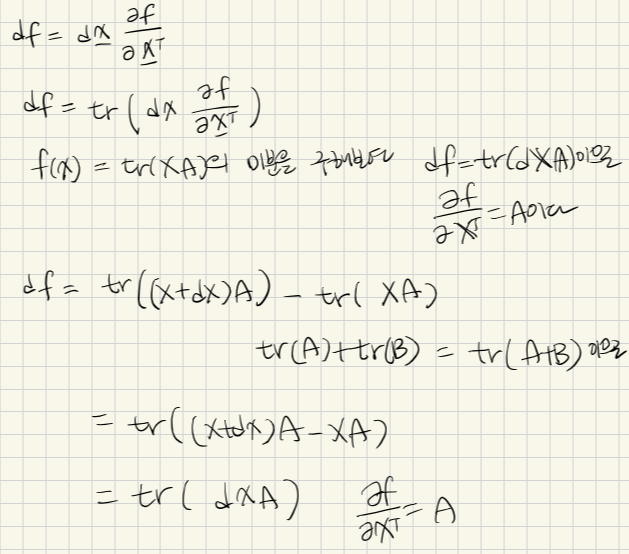 df = dx ∂f/∂x^T
df = tr(dx ∂f/∂x^T)
f(X) = tr(XA)의 미분을 구해보면 df = tr(dXA)이므로
∂f/∂X^T = A이다
df = tr((X+dX)A) - tr(XA)
tr(A)+tr(B) = tr(A+B) 이므로
= tr((X+dX)A-XA)
= tr(dXA) ∂f/∂X^T = A